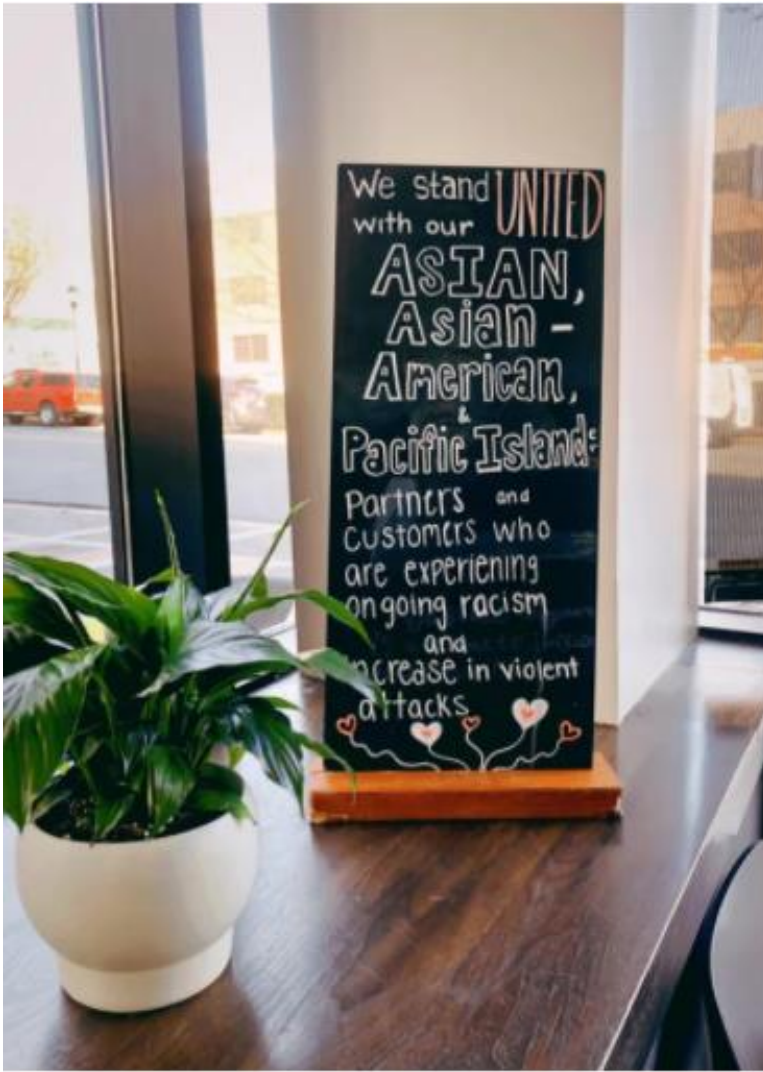 We stand UNITED
with our
ASIAN,
Asian-
American,
&
Pacific Island
Partners and
customers who
are experiening
ongoing racism
and
increase in violent
attacks